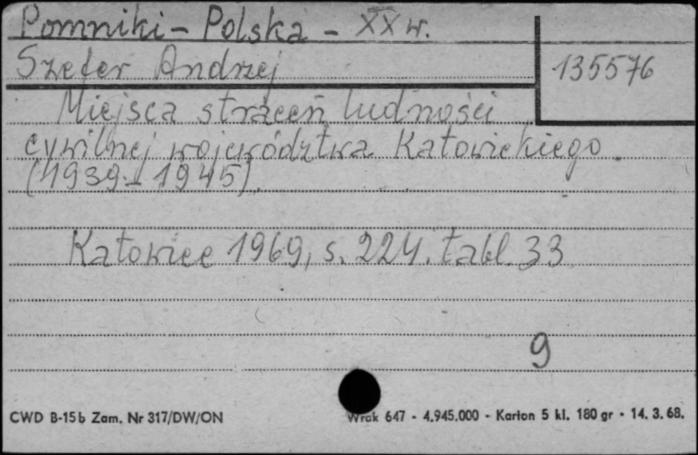 Pomniki - Polska - XX w.
Szefer Andrzej
135576
Miejsca straceń ludności
cywilnej województwa Katowickiego.
(1939-1945).
Katowice 1969, s. 224. tabl. 33
9
CWD B-15b Zam. Nr 317/DW/ON
Wrak 647 - 4.945.000 - Karton 5 kl. 180 gr - 14. 3. 68.